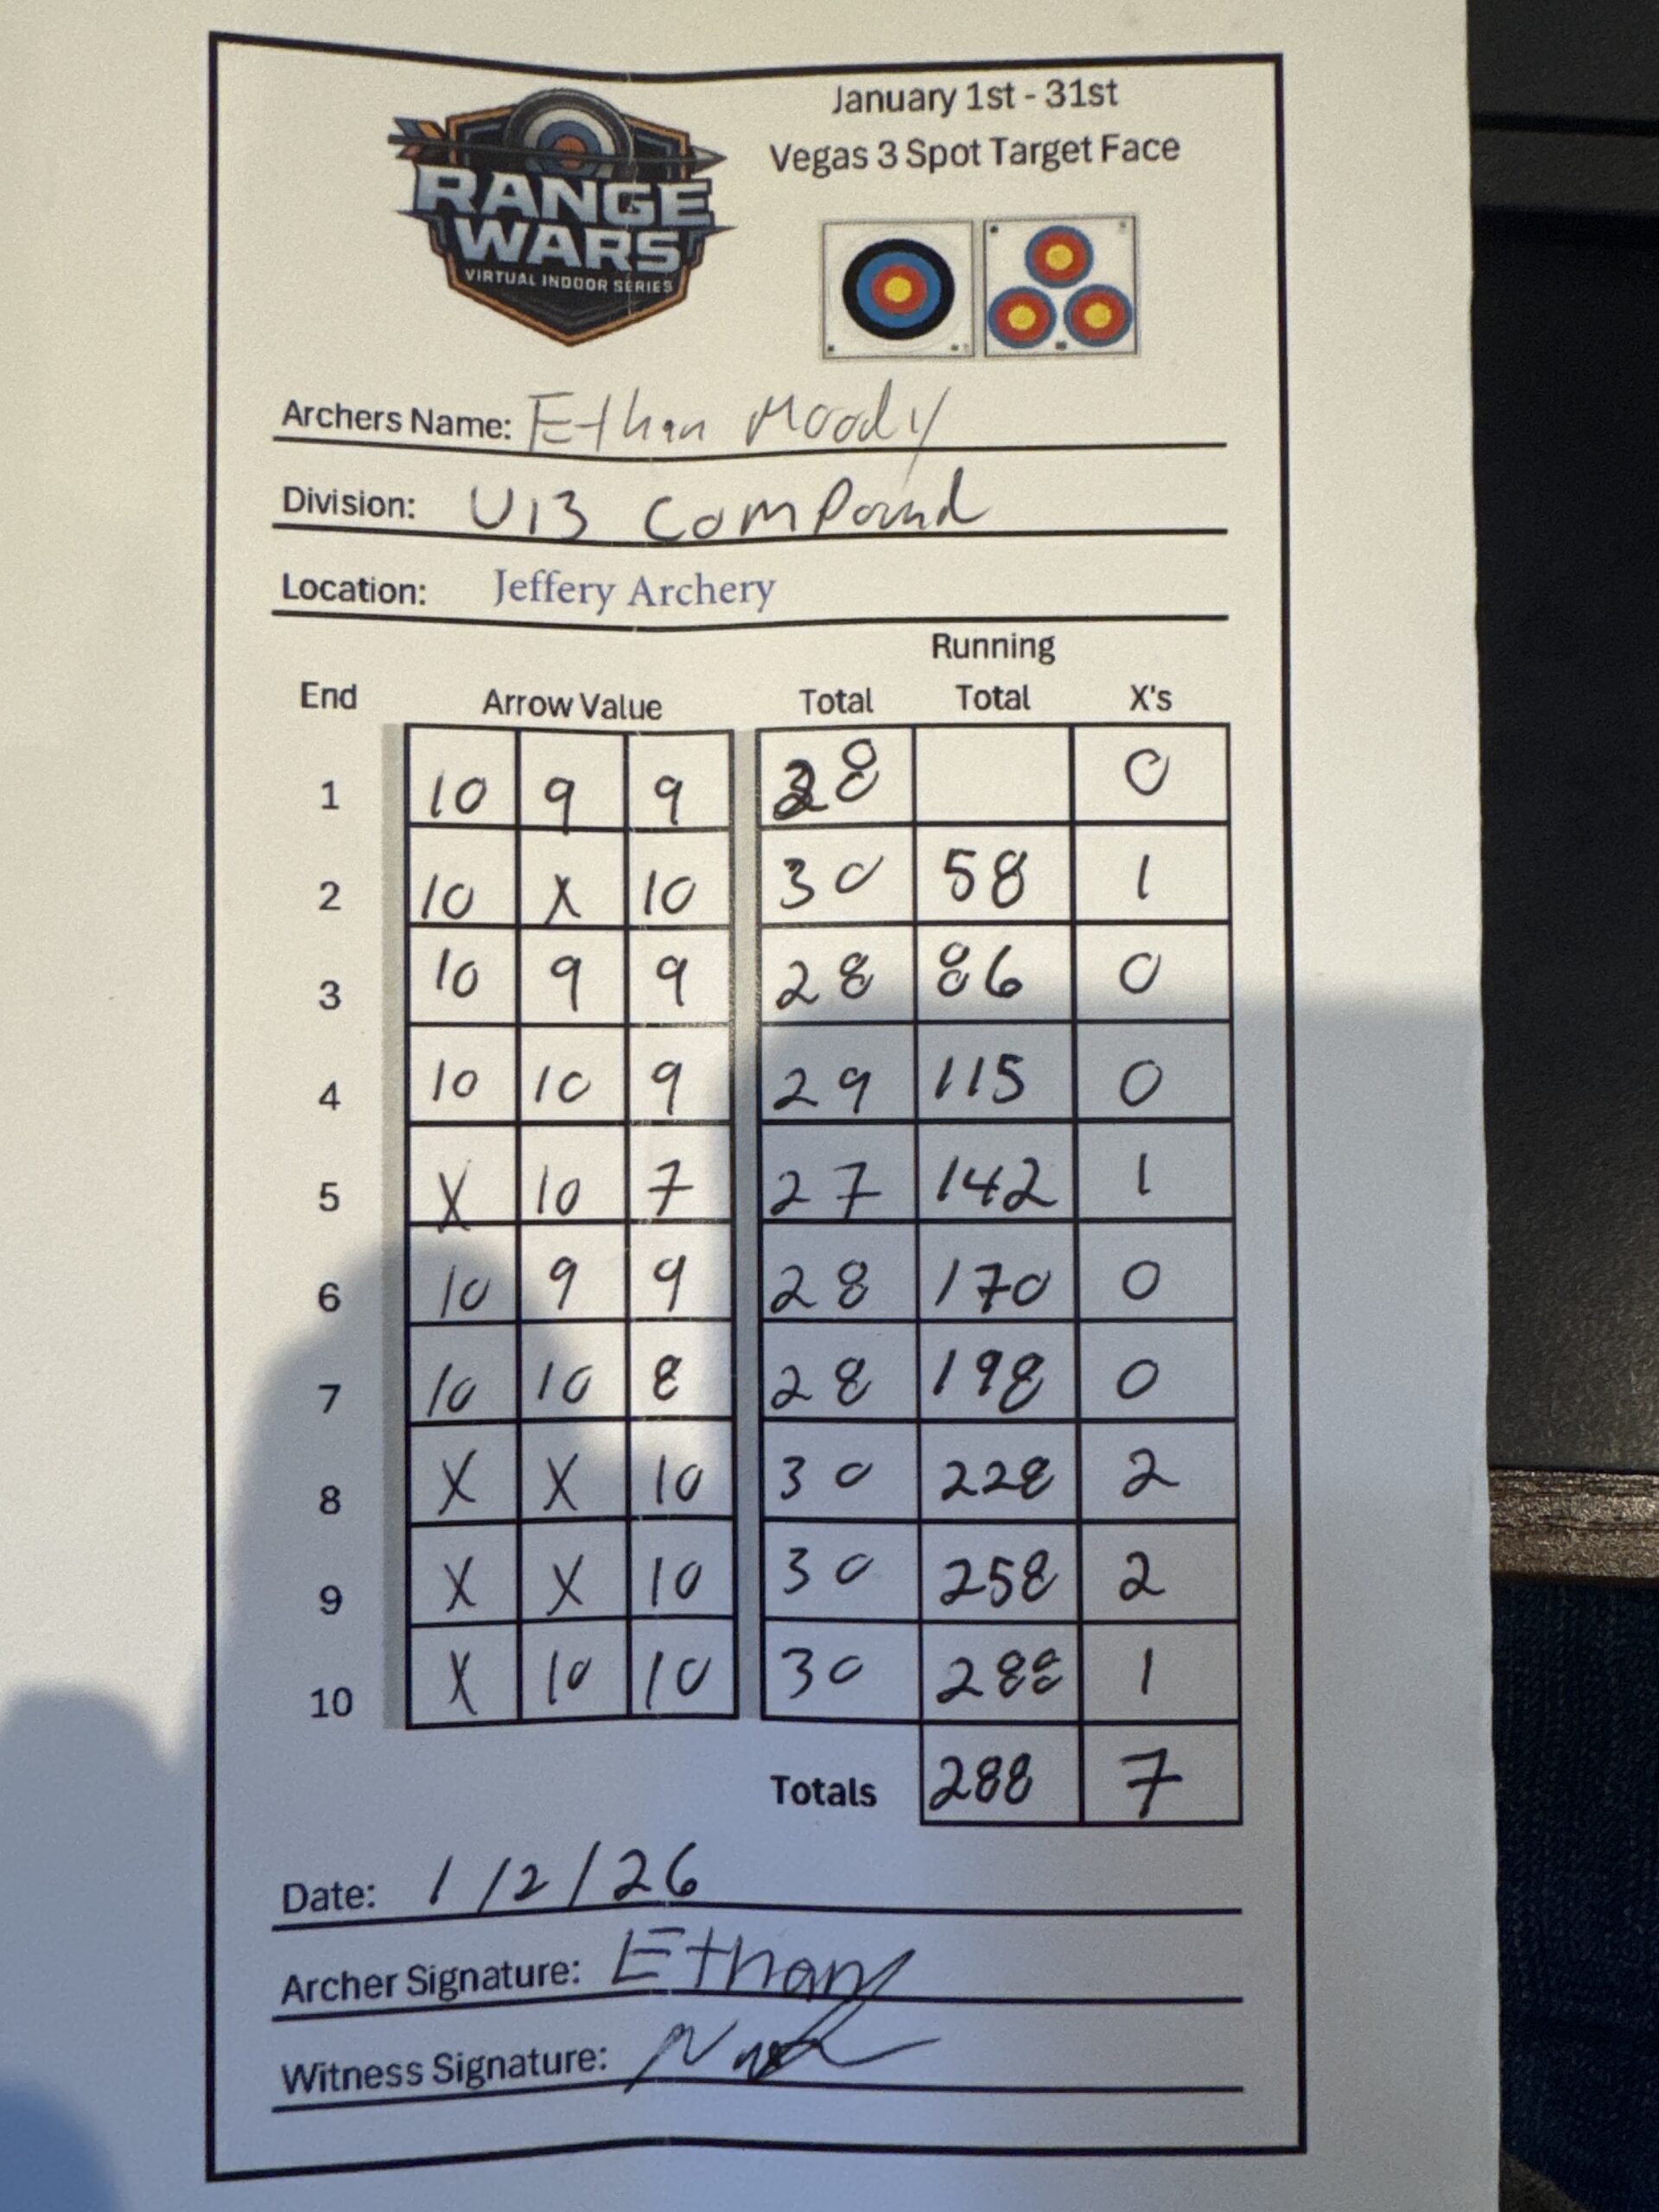 RANGE
WARS
VIRTUAL INDOOR SERIES
January 1st - 31st
Vegas 3 Spot Target Face
Archers Name: Ethan Moody
Division: U13 Compound
Location: Jeffery Archery
Running
End Arrow Value Total Total X's
1 10 9 9 28 0
2 10 X 10 30 58 1
3 10 9 9 28 86 0
4 10 10 9 29 115 0
5 X 10 7 27 142 1
6 10 9 9 28 170 0
7 10 10 8 28 198 0
8 X X 10 30 228 2
9 X X 10 30 258 2
10 X 10 10 30 288 1
Totals 288 7
Date: 1/2/26
Archer Signature: Ethan
Witness Signature: